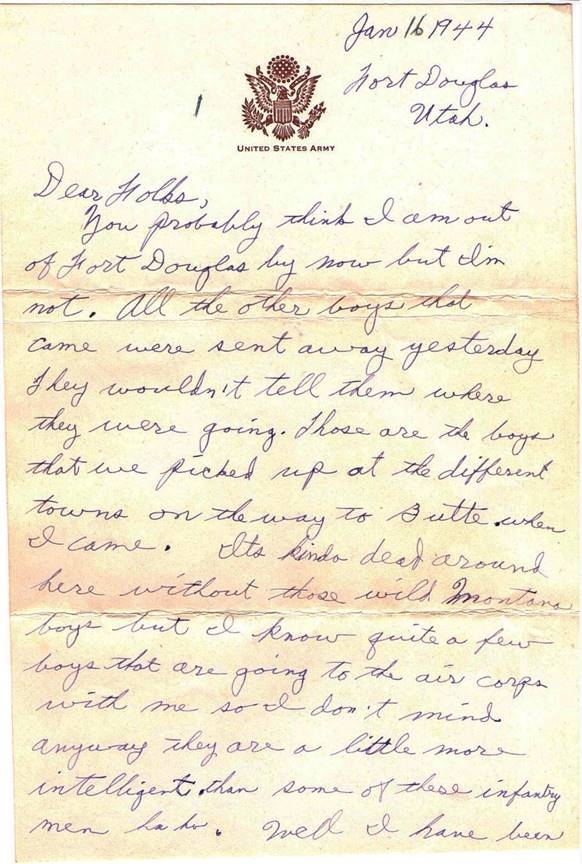 Jan 16 1944
Fort Douglas
Utah.
1
UNITED STATES ARMY
Dear Folks,
You probably think I am out
of Fort Douglas by now but I'm
not. All the other boys that
came were sent away yesterday
They wouldn't tell them where
they were going. Those are the boys
that we picked up at the different
towns on the way to Butte when
I came. Its kinda dead around
here without those wild Montana
boys but I know quite a few
boys that are going to the air corps
with me so I don't mind
anyway they are a little more
intelligent than some of these infantry
men ha ha. Well I have been